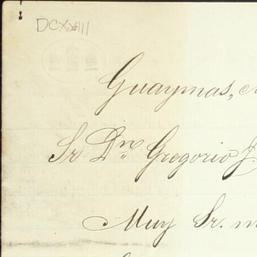 DCXXIII
Guaymas,
Sr Dn Gregorio J
Muy Sr. m